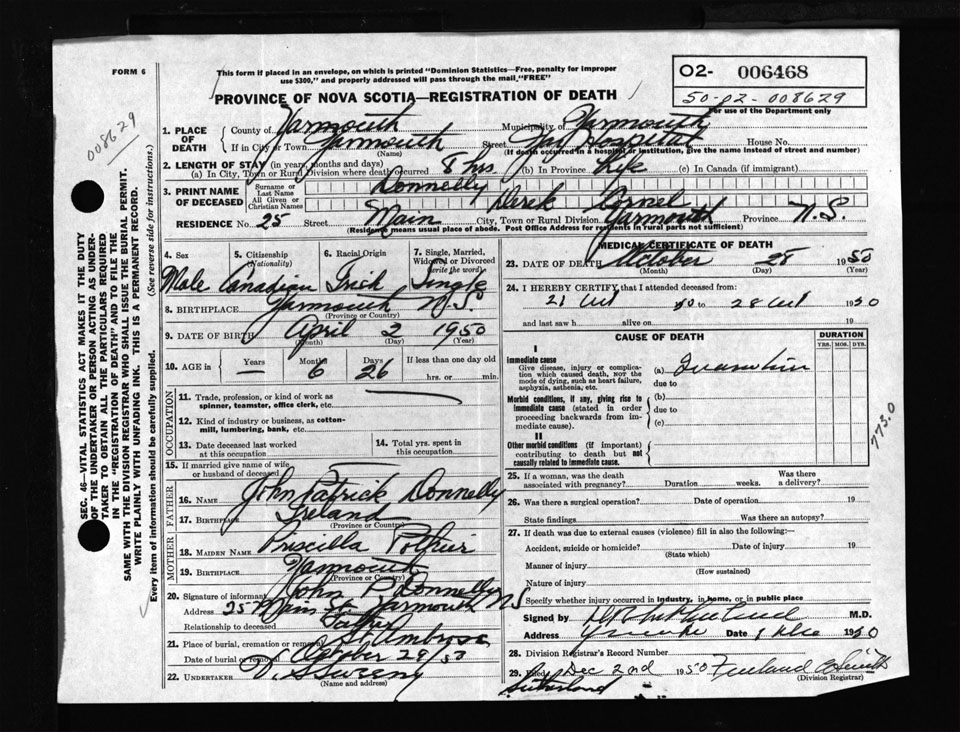 FORM 6
This form if placed in an envelope, on which is printed "Dominion Statistics—Free, penalty for improper
use $300," and properly addressed will pass through the mail, "FREE"
PROVINCE OF NOVA SCOTIA—REGISTRATION OF DEATH
O2- 006468
50-02-008629
For use of the Department only
008629
SEC. 46—VITAL STATISTICS ACT MAKES IT THE DUTY
OF THE UNDERTAKER OR PERSON ACTING AS UNDER-
TAKER TO OBTAIN ALL THE PARTICULARS REQUIRED
IN THE "REGISTRATION OF DEATH" AND TO FILE THE
SAME WITH THE DIVISION REGISTRAR WHO SHALL ISSUE THE BURIAL PERMIT.
WRITE PLAINLY WITH UNFADING INK. THIS IS A PERMANENT RECORD.
Every item of information should be carefully supplied. (See reverse side for instructions.)
1. PLACE OF DEATH
County of Yarmouth Municipality of Yarmouth
If in City or Town Yarmouth Street Hospital House No.
(Name) (If death occurred in a hospital or institution, give the name instead of street and number)
2. LENGTH OF STAY (in years, months and days)
(a) In City, Town or Rural Division where death occurred 8 hrs. (b) In Province Life (c) In Canada (if immigrant)
3. PRINT NAME OF DECEASED
Surname or Last Name Donnelly
All Given or Christian Names Derek Cornel
RESIDENCE No. 25 Street Main City, Town or Rural Division Yarmouth Province N.S.
(Residence means usual place of abode. Post Office Address for residents in rural parts not sufficient)
4. Sex 5. Citizenship (Nationality) 6. Racial Origin 7. Single, Married, Widowed or Divorced (write the word)
Male Canadian Irish Single
8. BIRTHPLACE Yarmouth N.S.
(Province or Country)
9. DATE OF BIRTH April 2 1950
(Month) (Day) (Year)
10. AGE in Years — Months 6 Days 26 If less than one day old
hrs. or min.
OCCUPATION
11. Trade, profession, or kind of work as
spinner, teamster, office clerk, etc.
12. Kind of industry or business, as cotton-
mill, lumbering, bank, etc.
13. Date deceased last worked
at this occupation
14. Total yrs. spent in
this occupation
15. If married give name of wife
or husband of deceased
FATHER
16. Name John Patrick Donnelly
17. Birthplace Ireland
(Province or Country)
MOTHER
18. Maiden Name Priscilla Pothier
19. Birthplace Yarmouth
(Province or Country)
20. Signature of informant John P Donnelly
Address 25 Main St. Yarmouth NS
Relationship to deceased Father
21. Place of burial, cremation or removal St Ambrose
Date of burial or removal October 29/50
22. UNDERTAKER V. S Sweeny
(Name and address)
MEDICAL CERTIFICATE OF DEATH
23. DATE OF DEATH October 28 1950
(Month) (Day) (Year)
24. I HEREBY CERTIFY that I attended deceased from:
21 Oct 50 to 28 Oct 1950
and last saw h alive on 19
CAUSE OF DEATH
DURATION
YRS. MOS. DYS.
I
Immediate cause
Give disease, injury or complica-
tion which caused death, NOT the
mode of dying, such as heart failure,
asphyxia, asthenia, etc.
(a)
due to
Morbid conditions, if any, giving rise to
immediate cause (stated in order
proceeding backwards from im-
mediate cause).
(b)
due to
(c)
II
Other morbid conditions (if important)
contributing to death but not
causally related to immediate cause.
773.0
25. If a woman, was the death
associated with pregnancy? Duration weeks. Was there
a delivery?
26. Was there a surgical operation? Date of operation 19
State findings Was there an autopsy?
27. If death was due to external causes (violence) fill in also the following:—
Accident, suicide or homicide? Date of injury 19
(State which)
Manner of injury
(How sustained)
Nature of injury
Specify whether injury occurred in industry, in home, or in public place
Signed by M.D.
Address Date 1 Dec 1950
28. Division Registrar's Record Number
29. Filed Dec 2nd 1950
Sutherland (Division Registrar)